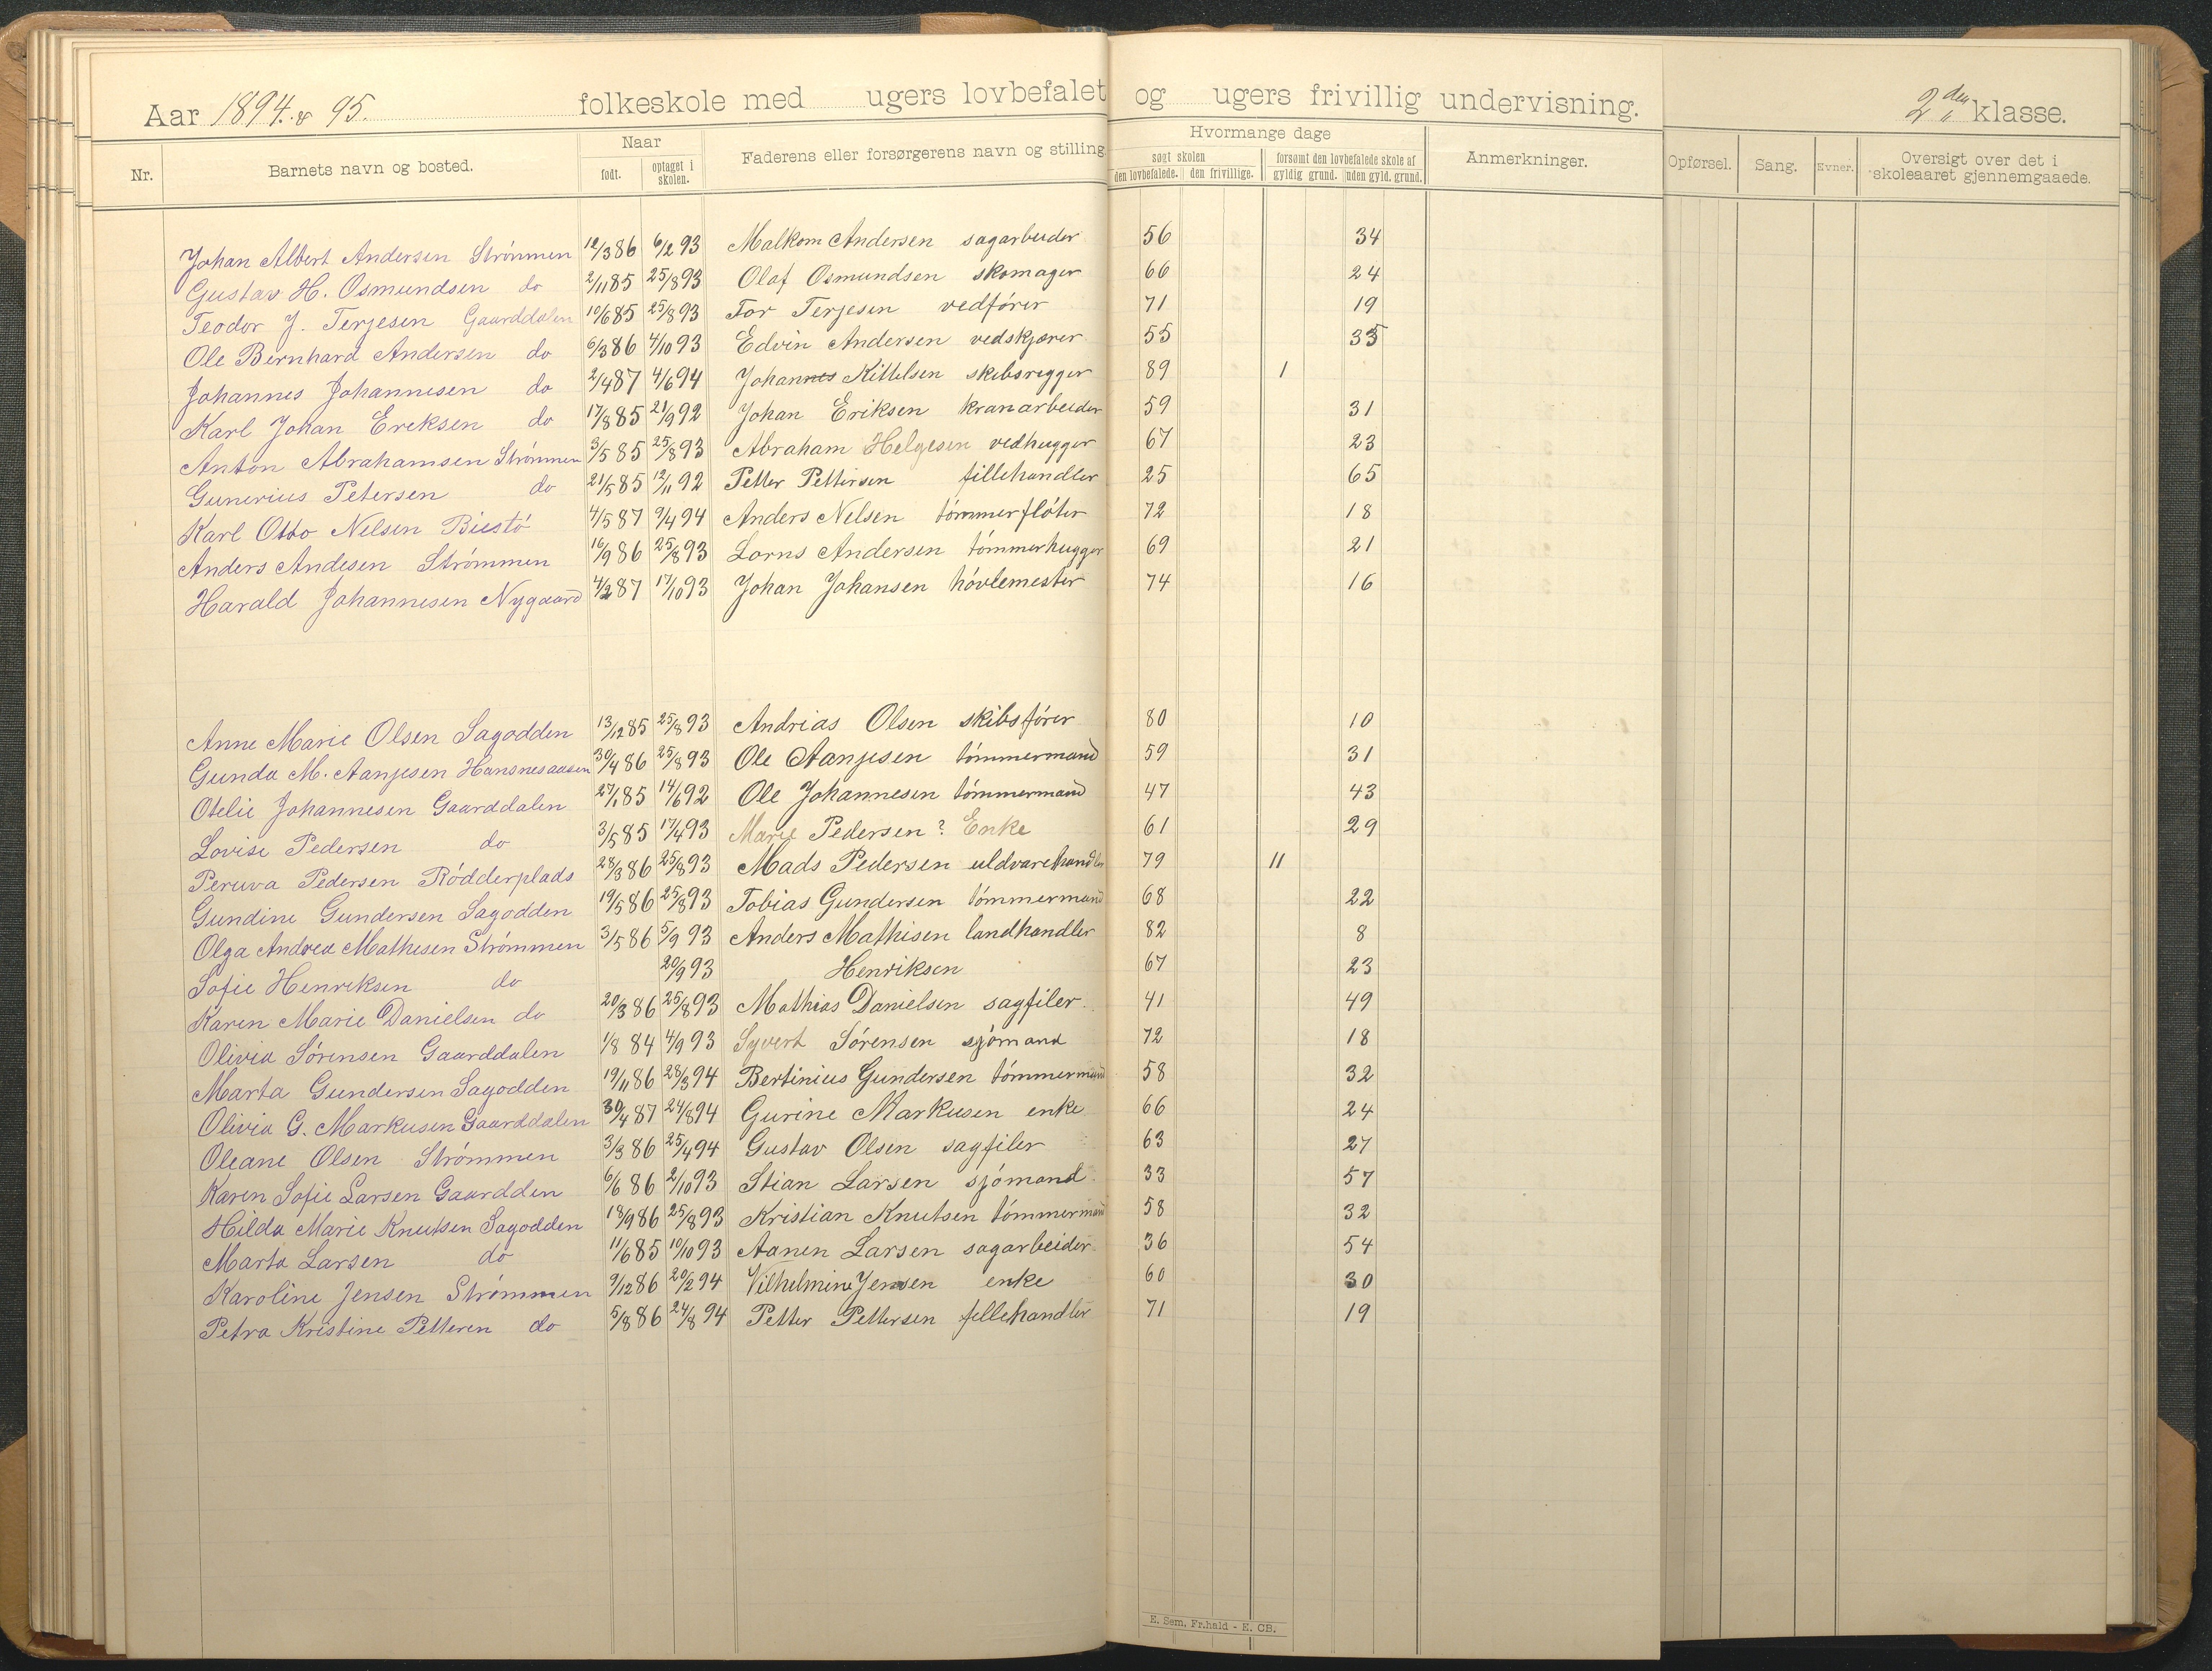 Aar 1894. & 95. folkeskole med ugers lovbefalet og ugers frivillig undervisning. 2den klasse.
Nr. Barnets navn og bosted. Naar født. optaget i skolen. Faderens eller forsørgerens navn og stilling Hvormange dage søgt skolen den lovbefalede. den frivillige. forsømt den lovbefalede skole af gyldig grund. uden gyld. grund. Anmerkninger. Opførsel. Sang. Evner. Oversigt over det i skoleaaret gjennemgaaede.
Johan Albert Andersen Strömmen 12/3 86 6/2 93 Malkom Andersen sagarbeider 56 34
Gustav H. Osmundsen do 2/11 85 25/8 93 Olaf Osmundsen skomager 66 24
Teodor J. Terjesen Gaarddalen 10/6 85 25/8 93 Tor Terjesen vedförer 71 19
Ole Bernhard Andersen do 6/3 86 4/10 93 Edvin Andersen vedskjærer 55 35
Johannes Johannesen do 2/4 87 4/6 94 Johannes Kittelsen skibsregger 89 1
Karl Johan Ereksen do 17/8 85 21/9 92 Johan Eriksen kranarbeider 59 31
Anton Abrahamsen Strömmen 3/5 85 25/8 93 Abraham Helgesen vedhugger 67 23
Gunerius Petersen do 21/5 85 12/11 92 Petter Pettersen fillehandler 25 65
Karl Otto Nelsen Biestö 4/5 87 9/4 94 Anders Nelsen tömmerflöter 72 18
Anders Andesen Strömmen 16/9 86 25/8 93 Lorns Andersen tömmerhugger 69 21
Harald Johannesen Nygaard 4/2 87 17/10 93 Johan Johansen hövlemester 74 16
Anne Marie Olsen Sagodden 13/12 85 25/8 93 Andrias Olsen skibsförer 80 10
Gunda M. Aanjesen Hansnesaasen 30/4 86 25/8 93 Ole Aanjesen tömmermand 59 31
Otelie Johannesen Gaarddalen 27/1 85 14/6 92 Ole Johannesen tömmermand 47 43
Lovise Pedersen do 3/5 85 17/4 93 Marie Pedersen? Enke 61 29
Peruva Pedersen Rödderplads 28/3 86 25/8 93 Mads Pedersen uldvarehandler 79 11
Gundine Gundersen Sagodden 19/5 86 25/8 93 Tobias Gundersen tömmermand 68 22
Olga Andrea Mathesen Strömmen 3/5 86 5/9 93 Anders Mathisen landhandler 82 8
Sofie Henreksen do 20/9 93 Henriksen 67 23
Karen Marie Danielsen do 20/3 86 25/8 93 Mathias Danielsen sagfiler. 41 49
Olivia Sörensen Gaarddalen 1/8 84 4/9 93 Syvert Sörensen sjömand 72 18
Marta Gundersen Sagodden 19/11 86 28/3 94 Bertinius Gundersen tömmermand 58 32
Olivia G. Markusen Gaarddalen 30/4 87 24/8 94 Gurine Markusen enke 66 24
Oleane Olsen Strömmen 3/3 86 25/4 94 Gustav Olsen sagfiler 63 27
Karen Sofie Larsen Gaardden 6/6 86 2/10 93 Stian Larsen sjömand. 33 57
Hilda Marie Knutsen Sagodden 18/9 86 25/8 93 Kristian Knutsen tömmermand 58 32
Marta Larsen do 11/6 85 10/10 93 Aanen Larsen sagarbeider 36 54
Karoline Jensen Strömmen 9/12 86 20/2 94 Vilhelmine Jensen enke 60 30
Petra Kristine Petteren do 5/8 86 24/8 94 Petter Pettersen fillehandler 71 19
E. Sem. Fr.hald - E. CB.